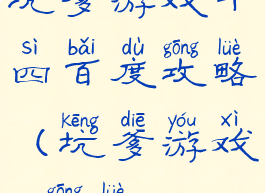 坑爹游戏十
sì bǎi dù gōng lüè
四百度攻略
kēng diē yóu xì
(坑爹游戏
gōng lüè